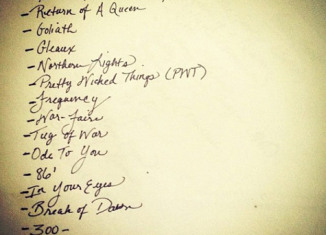 - Return of A Queen
- Goliath
- Gleaux
- Northern Lights
- Pretty Wicked Things (PWT)
- Frequency
- War-faire
- Tug of War
- Ode To You
- 86'
- In Your Eyes
- Break of Dawn
- 300 -